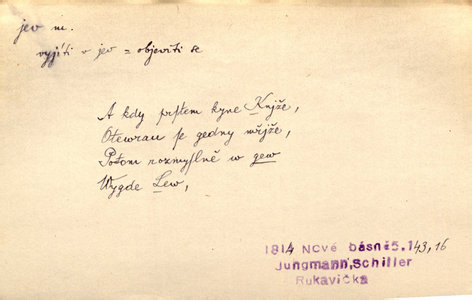 jev m.
vyjíti v jev = objeviti se
A kdy prſtem kyne Knjže,
Otewrau ſe gedny mřjže,
Potom rozmyſlně w gew
Wygde Lew,
1814 Nové básně5.143,16
Jungmann,Schiller
Rukavička